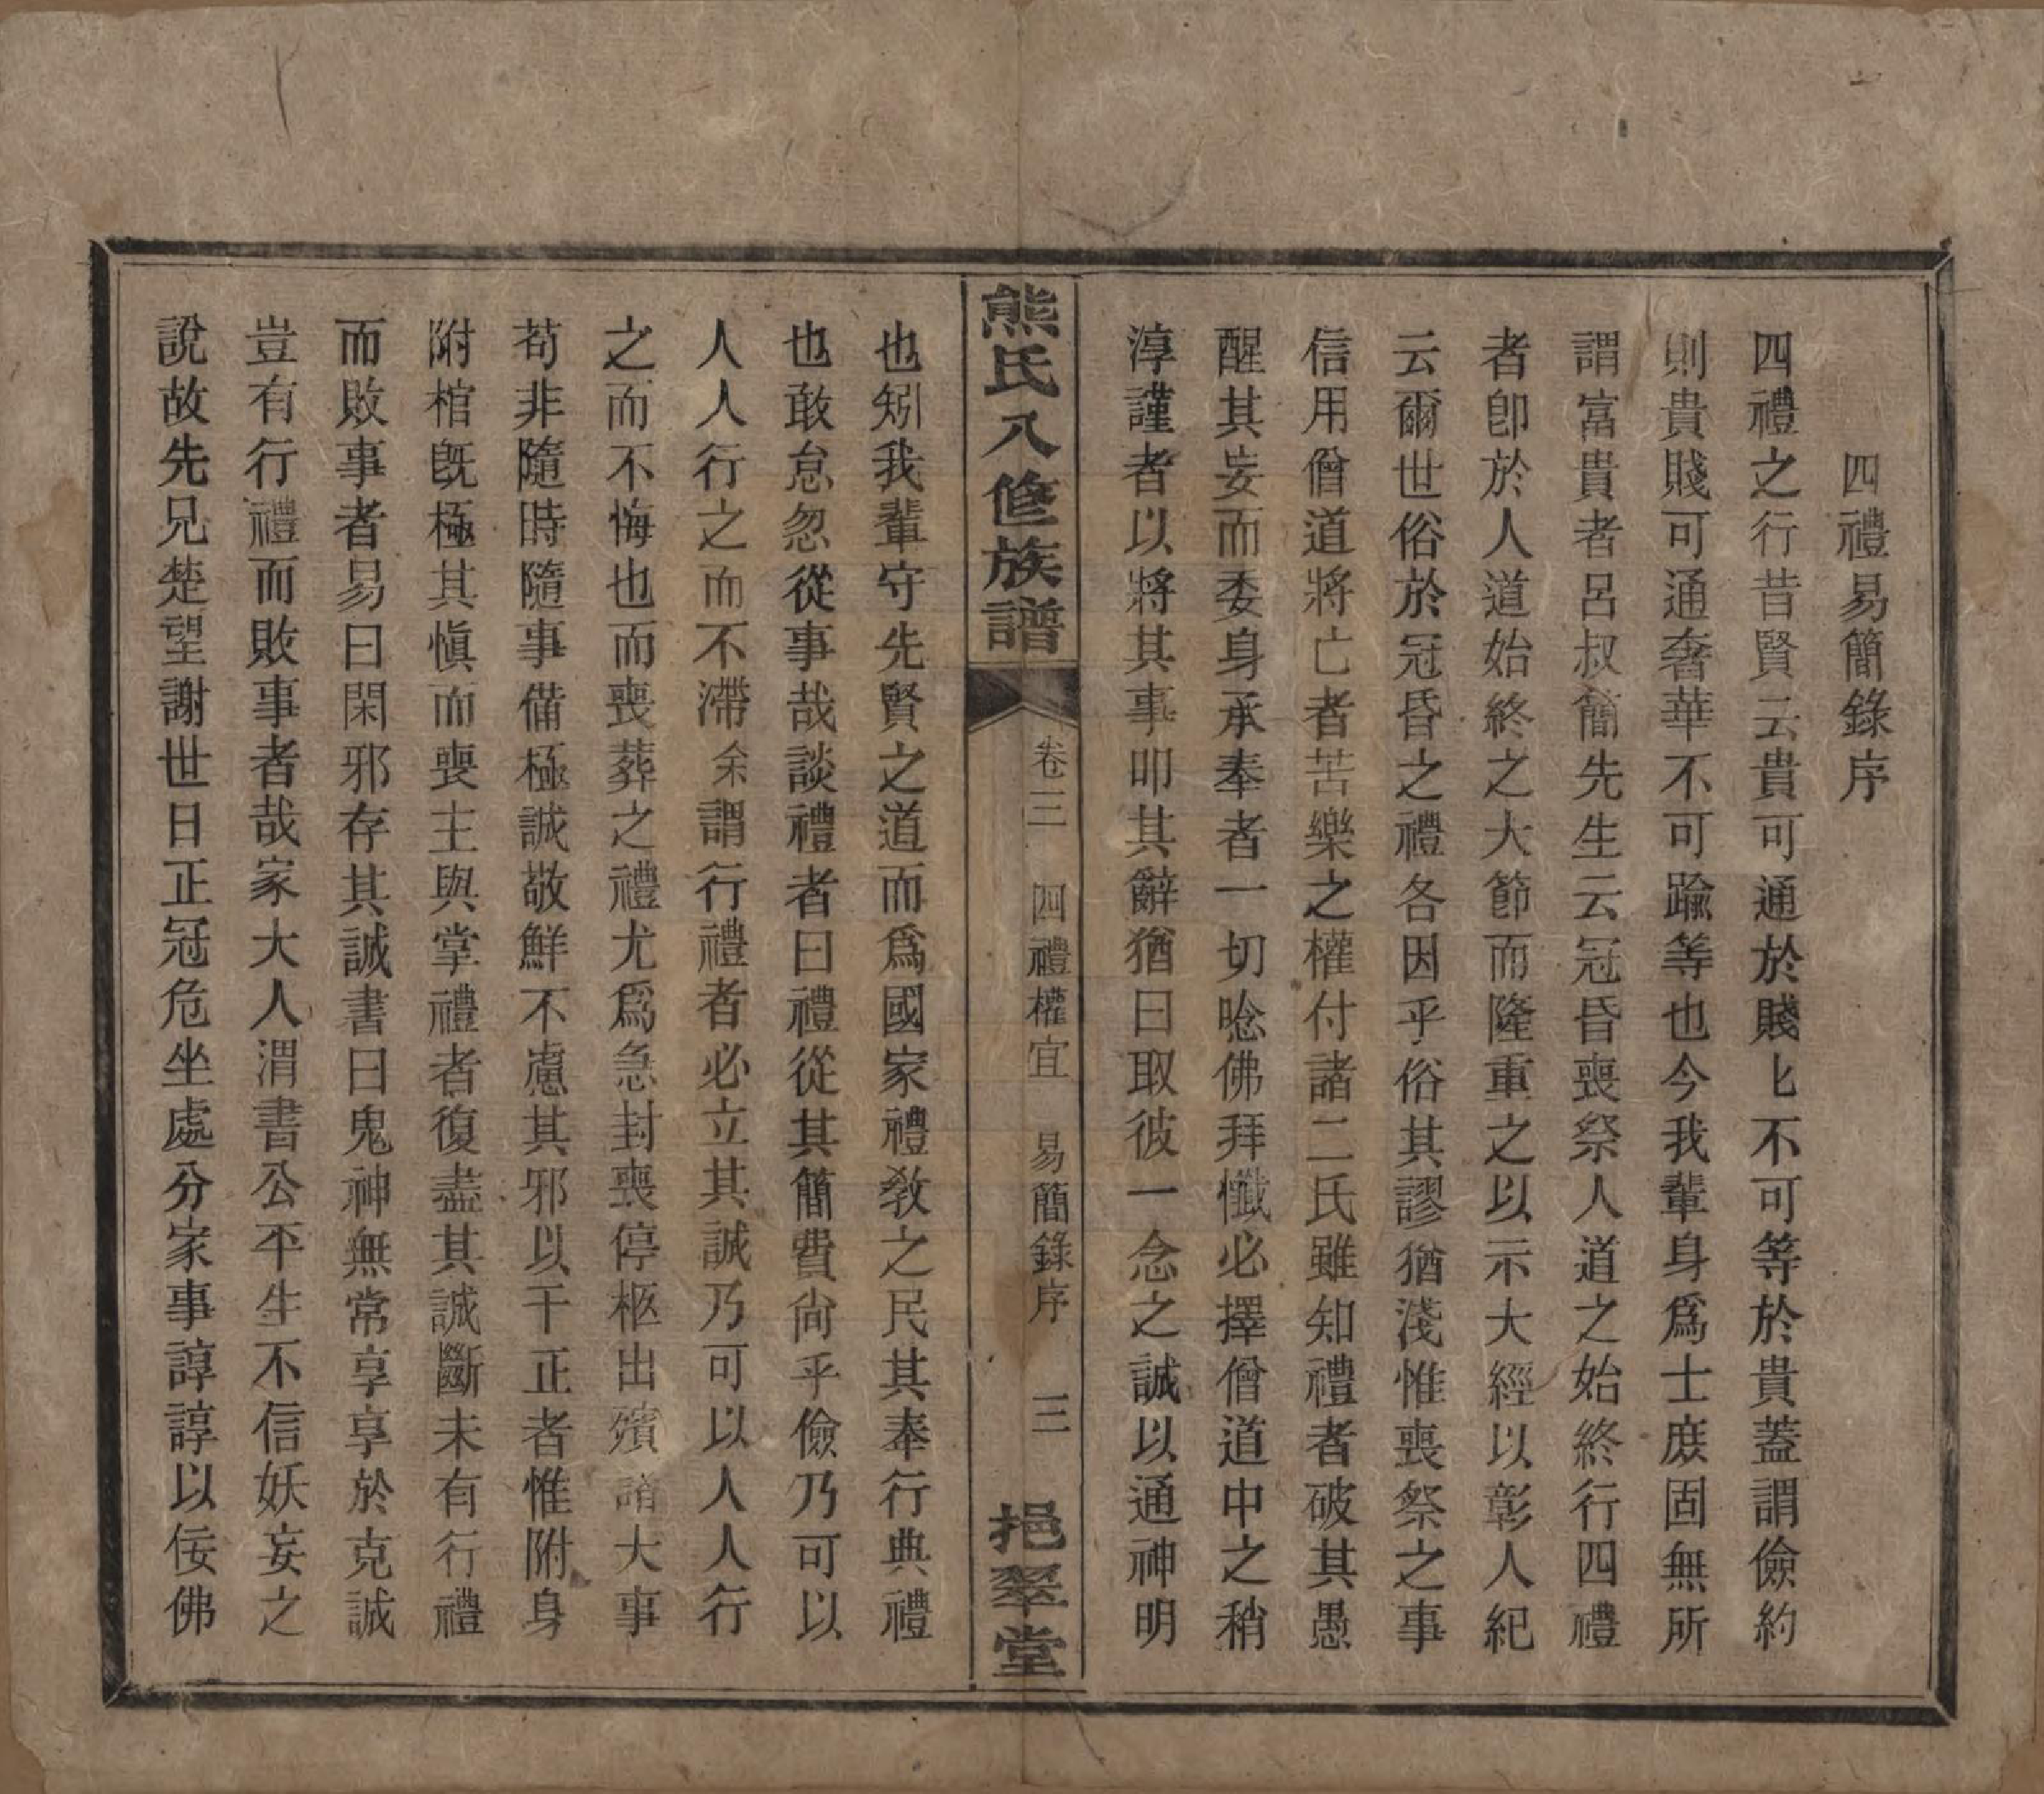 四禮易簡錄序
四禮之行昔賢云貴可通於賤匕不可等於貴蓋謂儉約
則貴賤可通奢華不可踰等也今我輩身爲士庶固無所
謂富貴者呂叔簡先生云冠昏喪祭人道之始終行四禮
者卽於人道始終之大節而隆重之以示大經以彰人紀
云爾世俗於冠昏之禮各因乎俗其謬猶淺惟喪祭之事
信用僧道將亡者苦樂之權付諸二氏雖知禮者破其愚
醒其妄而委身承奉者一切唸佛拜懺必擇僧道中之稍
淳謹者以將其事叩其辭猶曰取彼一念之誠以通神明
熊氏八修族譜
卷三 四禮權宜 易簡錄序 三
挹翠堂
也矧我輩守先賢之道而爲國家禮敎之民其奉行典禮
也敢怠忽從事哉談禮者曰禮從其簡費尙乎儉乃可以
人人行之而不滯余謂行禮者必立其誠乃可以人人行
之而不悔也而喪葬之禮尤爲急封喪停柩出殯諸大事
苟非隨時隨事備極誠敬鮮不慮其邪以干正者惟附身
附棺旣極其愼而喪主與掌禮者復盡其誠斷未有行禮
而敗事者易曰閑邪存其誠書曰鬼神無常享享於克誠
豈有行禮而敗事者哉家大人渭書公平生不信妖妄之
說故先兄楚望謝世日正冠危坐處分家事諄諄以佞佛